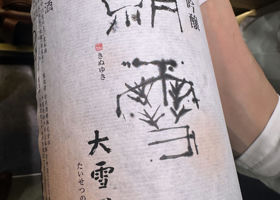 吟醸
絹雪
きぬゆき
大雪
たいせつの
酒